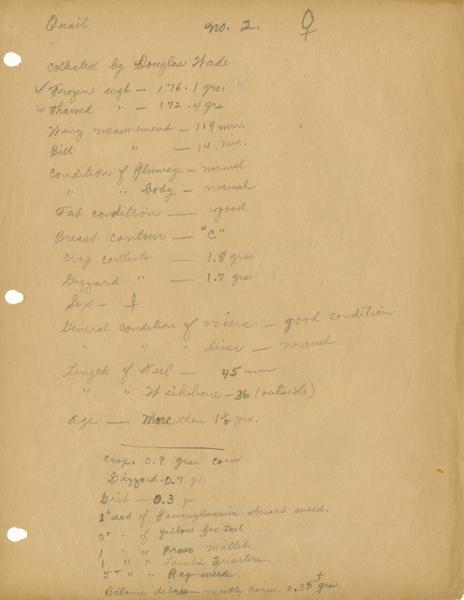 Quail no. 2. ♀
Collected by Douglas Wade
✓ Frozen wgt — 176.1 grs.
✓ Thawed " — 172.4 grs
Wing measurement — 119 mm.
Bill " — 14 mm.
Condition of Plumage — normal
" " body — normal
Fat condition — good
Breast contour — "C"
Crop contents — 1.8 grs
Gizzard " — 1.7 grs
Sex — ♀
General condition of vicera — good condition
" " " liver — normal
Length of Keel — 45 mm
" " Wishbone — 36 (outside)
Age — More than 1½ yrs.
Crop. 0.9 grs corn
Gizzard. 0.7 gr.
Grit — 0.3 gr.
1 seed of Pennsylvania Smart weed.
" of yellow foxtail
1 " " Proso Millet
1 " " Lambs Quarters.
5+ " " Rag weed.
Balance debris — mostly corn. 0.35 grs.